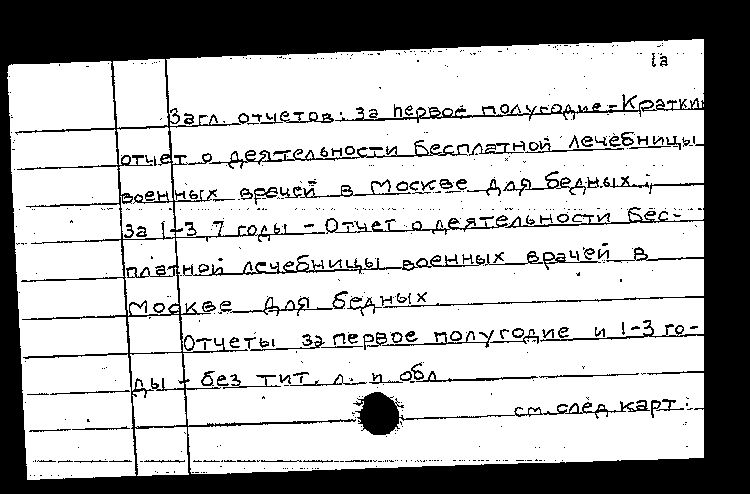 1а
Загл. отчетов: за первое полугодие - Краткий
отчет о деятельности бесплатной лечебницы
военных врачей в Москве для бедных.;
за 1-3, 7 годы - Отчет о деятельности бес-
платной лечебницы военных врачей в
Москве для бедных.
Отчеты за первое полугодие и 1-3 го-
ды - без тит. л. и обл.
см. след. карт.